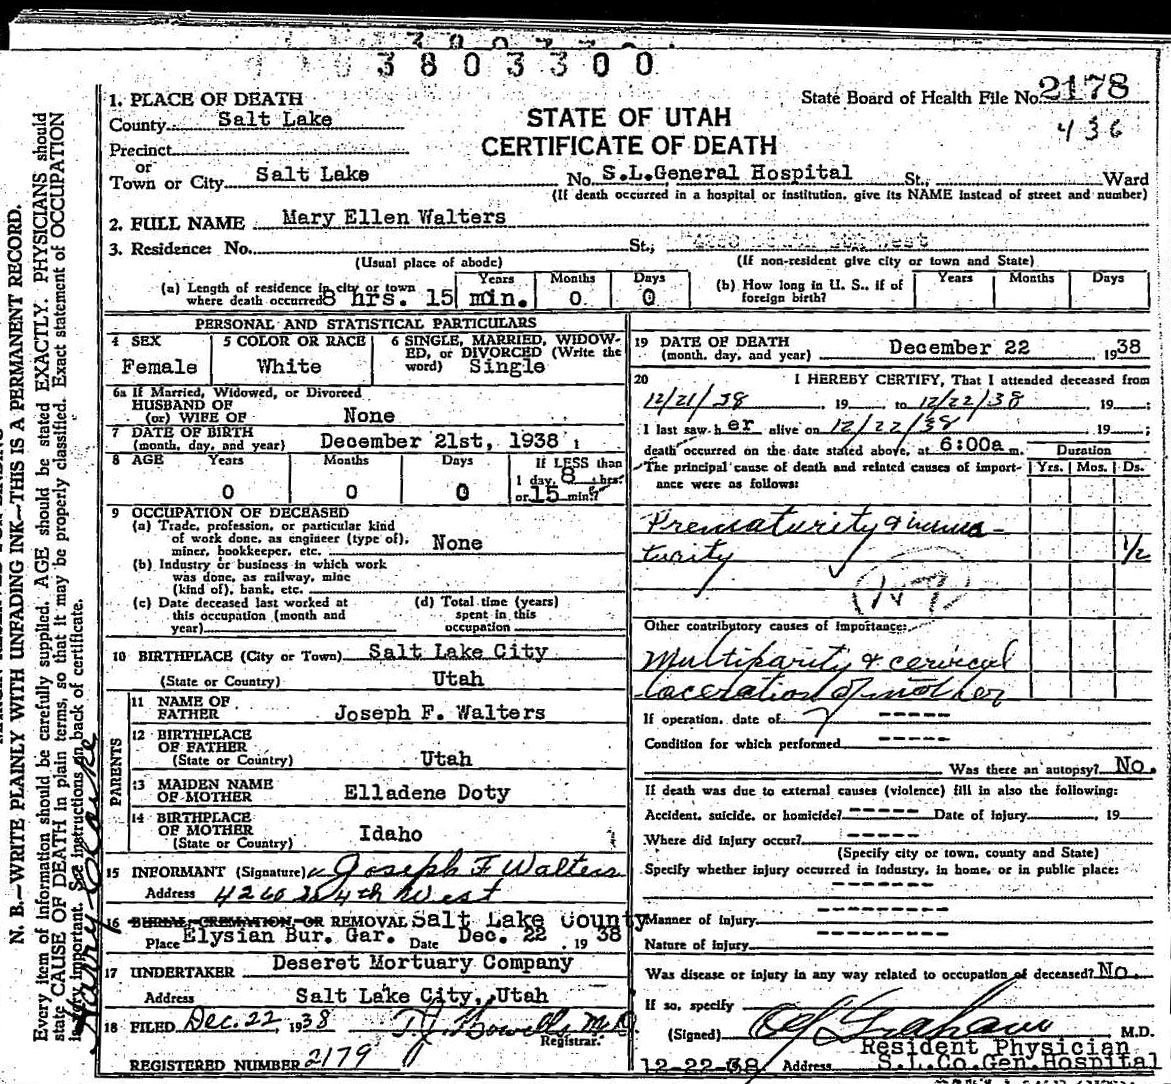 3803300
State Board of Health File No. 2178
436
STATE OF UTAH
CERTIFICATE OF DEATH
1. PLACE OF DEATH
County Salt Lake
Precinct
or
Town or City Salt Lake No. S.L.General Hospital St., Ward
(If death occurred in a hospital or institution, give its NAME instead of street and number)
2. FULL NAME Mary Ellen Walters
3. Residence: No. St., West
(Usual place of abode) (If non-resident give city or town and State)
(a) Length of residence in city or town where death occurred 8 hrs. 15 min. Years 0 Months 0 Days
(b) How long in U. S., if of foreign birth? Years Months Days
PERSONAL AND STATISTICAL PARTICULARS
4 SEX Female
5 COLOR OR RACE White
6 SINGLE, MARRIED, WIDOWED, or DIVORCED (Write the word) Single
6a If Married, Widowed, or Divorced
HUSBAND OF
(or) WIFE OF None
7 DATE OF BIRTH
(month, day, and year) December 21st, 1938
8 AGE Years Months Days If LESS than
0 0 0 1 day, 8 hrs.
or 15 min.?
9 OCCUPATION OF DECEASED
(a) Trade, profession, or particular kind
of work done, as engineer (type of),
miner, bookkeeper, etc. None
(b) Industry or business in which work
was done, as railway, mine
(kind of), bank, etc.
(c) Date deceased last worked at
this occupation (month and
year)
(d) Total time (years)
spent in this
occupation
10 BIRTHPLACE (City or Town) Salt Lake City
(State or Country) Utah
PARENTS
11 NAME OF
FATHER Joseph F. Walters
12 BIRTHPLACE
OF FATHER
(State or Country) Utah
13 MAIDEN NAME
OF MOTHER Elladene Doty
14 BIRTHPLACE
OF MOTHER
(State or Country) Idaho
15 INFORMANT (Signature) Joseph F Walters
Address 4260 So 4th West
16 BURIAL, CREMATION, OR REMOVAL Salt Lake County
Place Elysian Bur. Gar. Date Dec. 22, 1938
17 UNDERTAKER Deseret Mortuary Company
Address Salt Lake City, Utah
18 FILED Dec. 22 1938 M.D.
Registrar.
REGISTERED NUMBER 2179
19 DATE OF DEATH
(month, day, and year) December 22 1938
20 I HEREBY CERTIFY, That I attended deceased from
12/21/38, 19 to 12/22/38 19 ;
I last saw her alive on 12/22/38 19 ;
death occurred on the date stated above, at 6:00a m. Duration
The principal cause of death and related causes of importance were as follows: Yrs. Mos. Ds.
Prematurity & imma-
turity 1/2
Other contributory causes of importance:
Multiparity & cervical
laceration of mother
If operation, date of -----
Condition for which performed -----
Was there an autopsy? No.
If death was due to external causes (violence) fill in also the following:
Accident, suicide, or homicide? ----- Date of injury , 19
Where did injury occur? -----
(Specify city or town, county and State)
Specify whether injury occurred in industry, in home, or in public place:
-------
Manner of injury -------
Nature of injury -------
Was disease or injury in any way related to occupation of deceased? No.
If so, specify
(Signed) Graham M.D.
Resident Physician
12-22-38 Address S.L.Co.Gen.Hospital
N. B.—WRITE PLAINLY WITH UNFADING INK—THIS IS A PERMANENT RECORD.
Every item of information should be carefully supplied. AGE should be stated EXACTLY. PHYSICIANS should
state CAUSE OF DEATH in plain terms, so that it may be properly classified. Exact statement of OCCUPATION
is very important. See instructions on back of certificate.